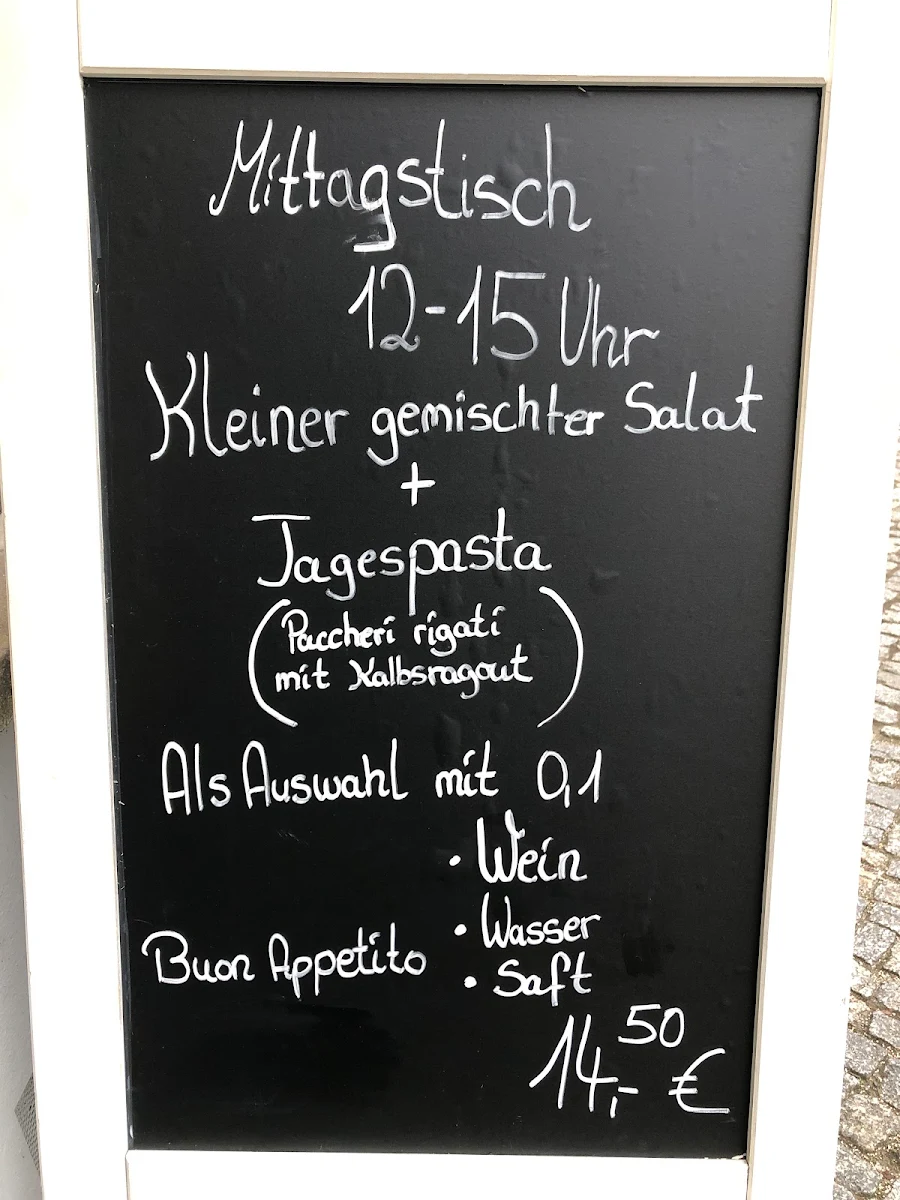 Mittagstisch
12-15 Uhr
Kleiner gemischter Salat
+
Tagespasta
(Paccheri rigati
mit Kalbsragout)
Als Auswahl mit 0,1
• Wein
• Wasser
Buon Appetito
• Saft
14,-50 €